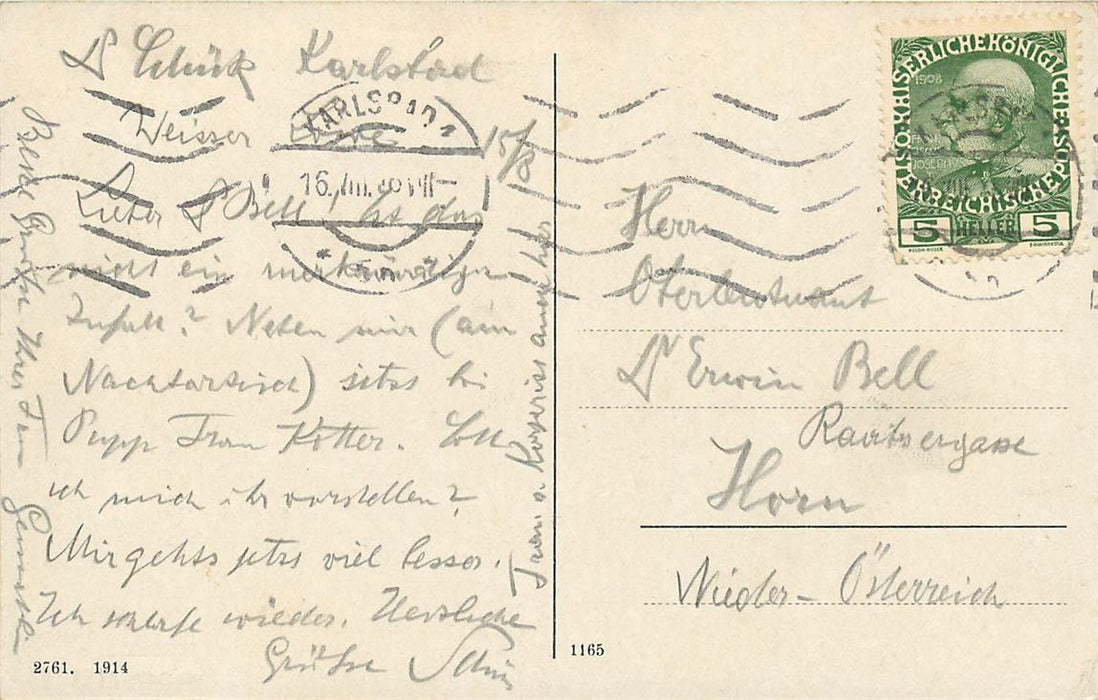 Dr Schück Karlsbad
Weisser Löwe 15/8
Lieber Dr Bell! Ist das
nicht ein merkwürdiger
Zufall? Neben mir (am
Nachbartisch) sitzt bei
Pupp Frau Kotter. Soll
ich mich ihr vorstellen?
Mir gehts jetzt viel besser.
Ich schlafe wieder. Herzliche
Grüsse Schück
Beste Grüsse Ihrer Frau Gemahlin
Frau v. auch hier
KARLSBAD 1
16. VIII.
Herrn
Oberleutnant
Dr Erwin Bell
Horn
Nieder-Österreich
KAISERLICHE KÖNIGLICHE ÖSTERREICHISCHE POST
1908
FRANZ
JOSEPH I
5 HELLER 5
2761. 1914
1165